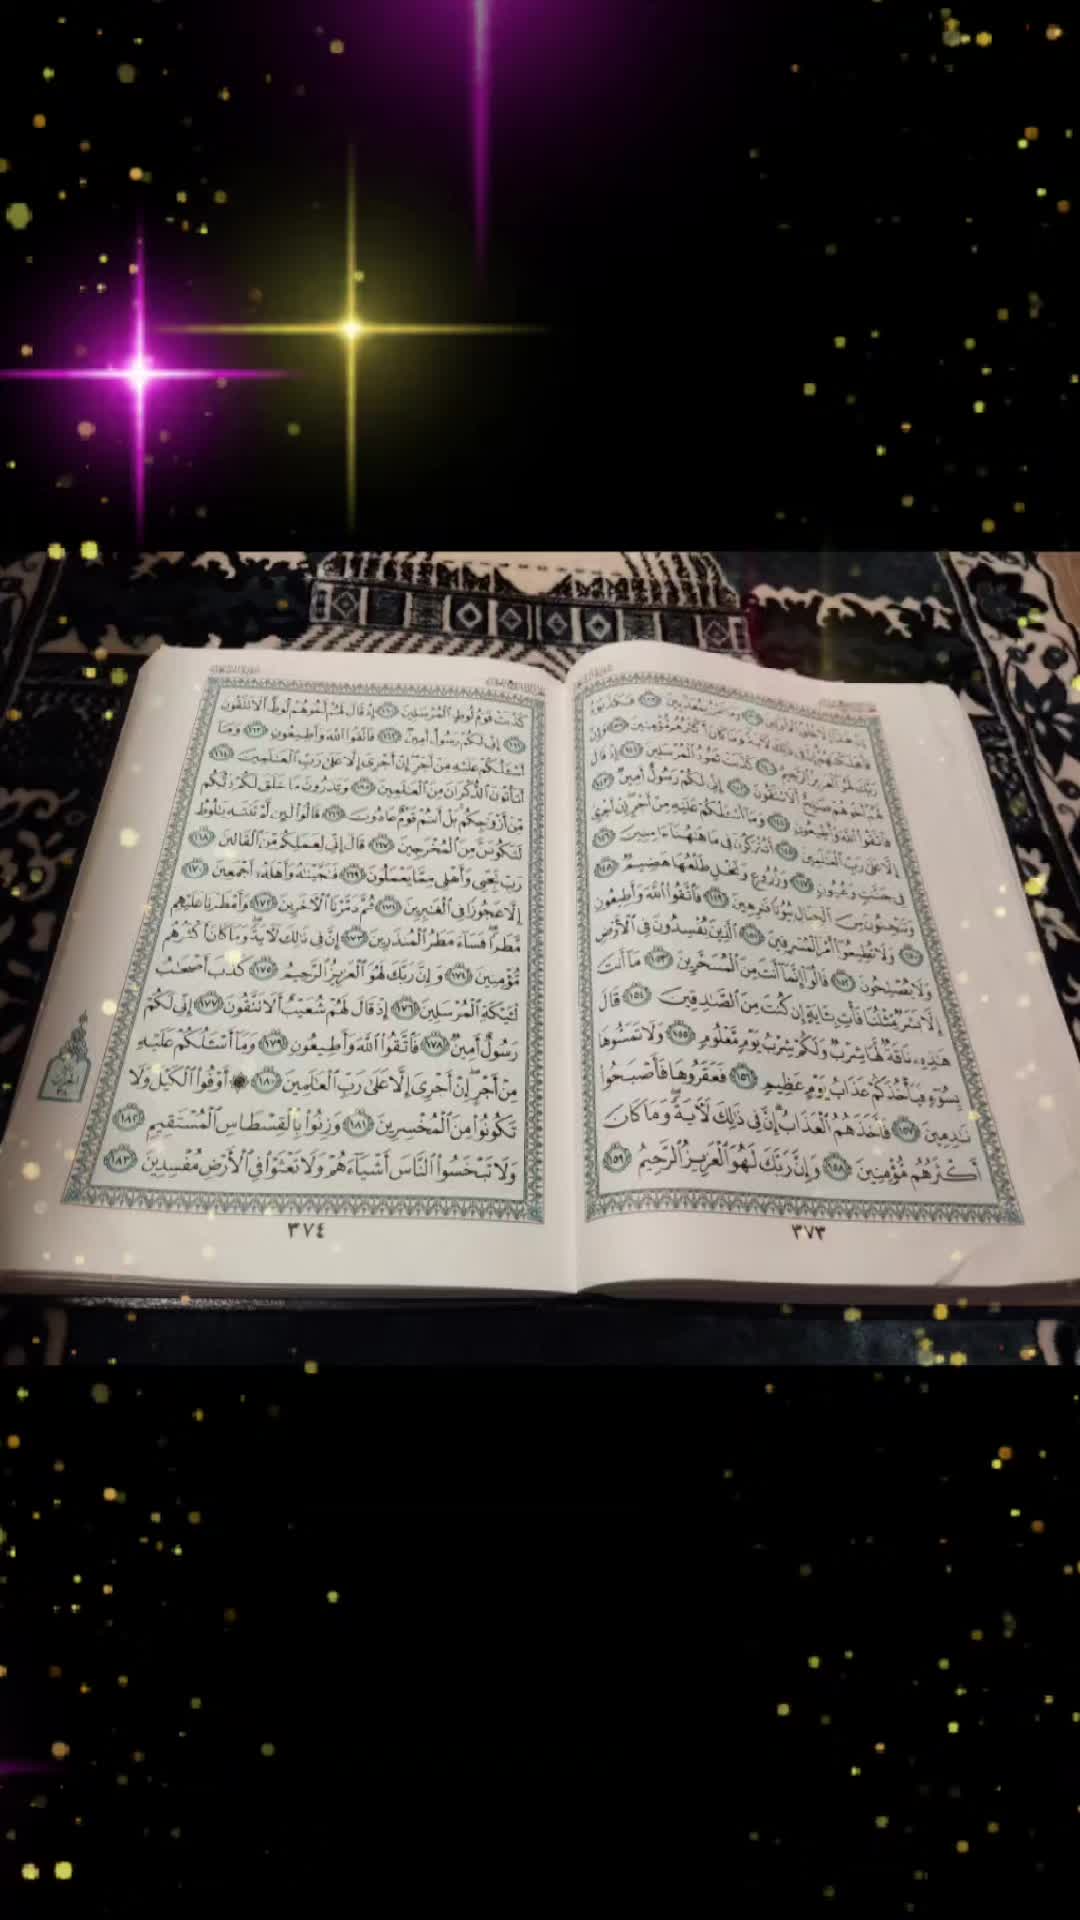 إِنْ هَٰذَآ إِلَّا خُلُقُ ٱلْأَوَّلِينَ ١٣٧ وَمَا نَحْنُ بِمُعَذَّبِينَ ١٣٨ فَكَذَّبُوهُ
فَأَهْلَكْنَٰهُمْ إِنَّ فِى ذَٰلِكَ لَءَايَةً وَمَا كَانَ أَكْثَرُهُم مُّؤْمِنِينَ ١٣٩ وَإِنَّ
رَبَّكَ لَهُوَ ٱلْعَزِيزُ ٱلرَّحِيمُ ١٤٠ كَذَّبَتْ ثَمُودُ ٱلْمُرْسَلِينَ ١٤١ إِذْ قَالَ
لَهُمْ أَخُوهُمْ صَٰلِحٌ أَلَا تَتَّقُونَ ١٤٢ إِنِّى لَكُمْ رَسُولٌ أَمِينٌ ١٤٣
فَٱتَّقُوا۟ ٱللَّهَ وَأَطِيعُونِ ١٤٤ وَمَآ أَسْـَٔلُكُمْ عَلَيْهِ مِنْ أَجْرٍ إِنْ أَجْرِىَ
إِلَّا عَلَىٰ رَبِّ ٱلْعَٰلَمِينَ ١٤٥ أَتُتْرَكُونَ فِى مَا هَٰهُنَآ ءَامِنِينَ ١٤٦
فِى جَنَّٰتٍ وَعُيُونٍ ١٤٧ وَزُرُوعٍ وَنَخْلٍ طَلْعُهَا هَضِيمٌ ١٤٨
وَتَنْحِتُونَ مِنَ ٱلْجِبَالِ بُيُوتًا فَٰرِهِينَ ١٤٩ فَٱتَّقُوا۟ ٱللَّهَ وَأَطِيعُونِ
١٥٠ وَلَا تُطِيعُوٓا۟ أَمْرَ ٱلْمُسْرِفِينَ ١٥١ ٱلَّذِينَ يُفْسِدُونَ فِى ٱلْأَرْضِ
وَلَا يُصْلِحُونَ ١٥٢ قَالُوٓا۟ إِنَّمَآ أَنتَ مِنَ ٱلْمُسَحَّرِينَ ١٥٣ مَآ أَنتَ
إِلَّا بَشَرٌ مِّثْلُنَا فَأْتِ بِـَٔايَةٍ إِن كُنتَ مِنَ ٱلصَّٰدِقِينَ ١٥٤ قَالَ
هَٰذِهِۦ نَاقَةٌ لَّهَا شِرْبٌ وَلَكُمْ شِرْبُ يَوْمٍ مَّعْلُومٍ ١٥٥ وَلَا تَمَسُّوهَا
بِسُوٓءٍ فَيَأْخُذَكُمْ عَذَابُ يَوْمٍ عَظِيمٍ ١٥٦ فَعَقَرُوهَا فَأَصْبَحُوا۟
نَٰدِمِينَ ١٥٧ فَأَخَذَهُمُ ٱلْعَذَابُ إِنَّ فِى ذَٰلِكَ لَءَايَةً وَمَا كَانَ
أَكْثَرُهُم مُّؤْمِنِينَ ١٥٨ وَإِنَّ رَبَّكَ لَهُوَ ٱلْعَزِيزُ ٱلرَّحِيمُ ١٥٩
٣٧٣
كَذَّبَتْ قَوْمُ لُوطٍ ٱلْمُرْسَلِينَ ١٦٠ إِذْ قَالَ لَهُمْ أَخُوهُمْ لُوطٌ أَلَا تَتَّقُونَ
١٦١ إِنِّى لَكُمْ رَسُولٌ أَمِينٌ ١٦٢ فَٱتَّقُوا۟ ٱللَّهَ وَأَطِيعُونِ ١٦٣ وَمَآ
أَسْـَٔلُكُمْ عَلَيْهِ مِنْ أَجْرٍ إِنْ أَجْرِىَ إِلَّا عَلَىٰ رَبِّ ٱلْعَٰلَمِينَ ١٦٤
أَتَأْتُونَ ٱلذُّكْرَانَ مِنَ ٱلْعَٰلَمِينَ ١٦٥ وَتَذَرُونَ مَا خَلَقَ لَكُمْ رَبُّكُم
مِّنْ أَزْوَٰجِكُم بَلْ أَنتُمْ قَوْمٌ عَادُونَ ١٦٦ قَالُوا۟ لَئِن لَّمْ تَنتَهِ يَٰلُوطُ
لَتَكُونَنَّ مِنَ ٱلْمُخْرَجِينَ ١٦٧ قَالَ إِنِّى لِعَمَلِكُم مِّنَ ٱلْقَالِينَ ١٦٨
رَبِّ نَجِّنِى وَأَهْلِى مِمَّا يَعْمَلُونَ ١٦٩ فَنَجَّيْنَٰهُ وَأَهْلَهُۥٓ أَجْمَعِينَ ١٧٠
إِلَّا عَجُوزًا فِى ٱلْغَٰبِرِينَ ١٧١ ثُمَّ دَمَّرْنَا ٱلْءَاخَرِينَ ١٧٢ وَأَمْطَرْنَا عَلَيْهِم
مَّطَرًا فَسَآءَ مَطَرُ ٱلْمُنذَرِينَ ١٧٣ إِنَّ فِى ذَٰلِكَ لَءَايَةً وَمَا كَانَ أَكْثَرُهُم
مُّؤْمِنِينَ ١٧٤ وَإِنَّ رَبَّكَ لَهُوَ ٱلْعَزِيزُ ٱلرَّحِيمُ ١٧٥ كَذَّبَ أَصْحَٰبُ
لْـَٔيْكَةِ ٱلْمُرْسَلِينَ ١٧٦ إِذْ قَالَ لَهُمْ شُعَيْبٌ أَلَا تَتَّقُونَ ١٧٧ إِنِّى لَكُمْ
رَسُولٌ أَمِينٌ ١٧٨ فَٱتَّقُوا۟ ٱللَّهَ وَأَطِيعُونِ ١٧٩ وَمَآ أَسْـَٔلُكُمْ عَلَيْهِ
مِنْ أَجْرٍ إِنْ أَجْرِىَ إِلَّا عَلَىٰ رَبِّ ٱلْعَٰلَمِينَ ١٨٠ ۞ أَوْفُوا۟ ٱلْكَيْلَ وَلَا
تَكُونُوا۟ مِنَ ٱلْمُخْسِرِينَ ١٨١ وَزِنُوا۟ بِٱلْقِسْطَاسِ ٱلْمُسْتَقِيمِ ١٨٢
وَلَا تَبْخَسُوا۟ ٱلنَّاسَ أَشْيَآءَهُمْ وَلَا تَعْثَوْا۟ فِى ٱلْأَرْضِ مُفْسِدِينَ ١٨٣
٣٧٤